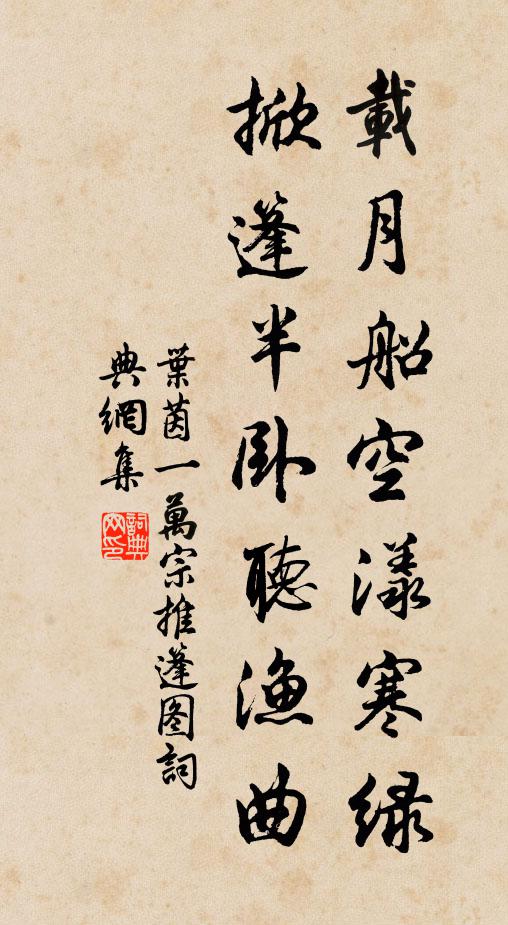 載月船空漾寒绿
掀篷半卧聽漁曲
葉茵一萬宗推篷图詞
典網集
詞典网印